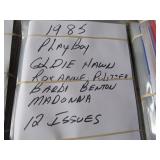 1985
PLAYBOY
GOLDIE HAWN
ROXANNE PULITZER
BARBI BENTON
MADONNA
12 ISSUES